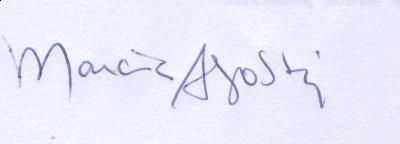 Marcia Agosti